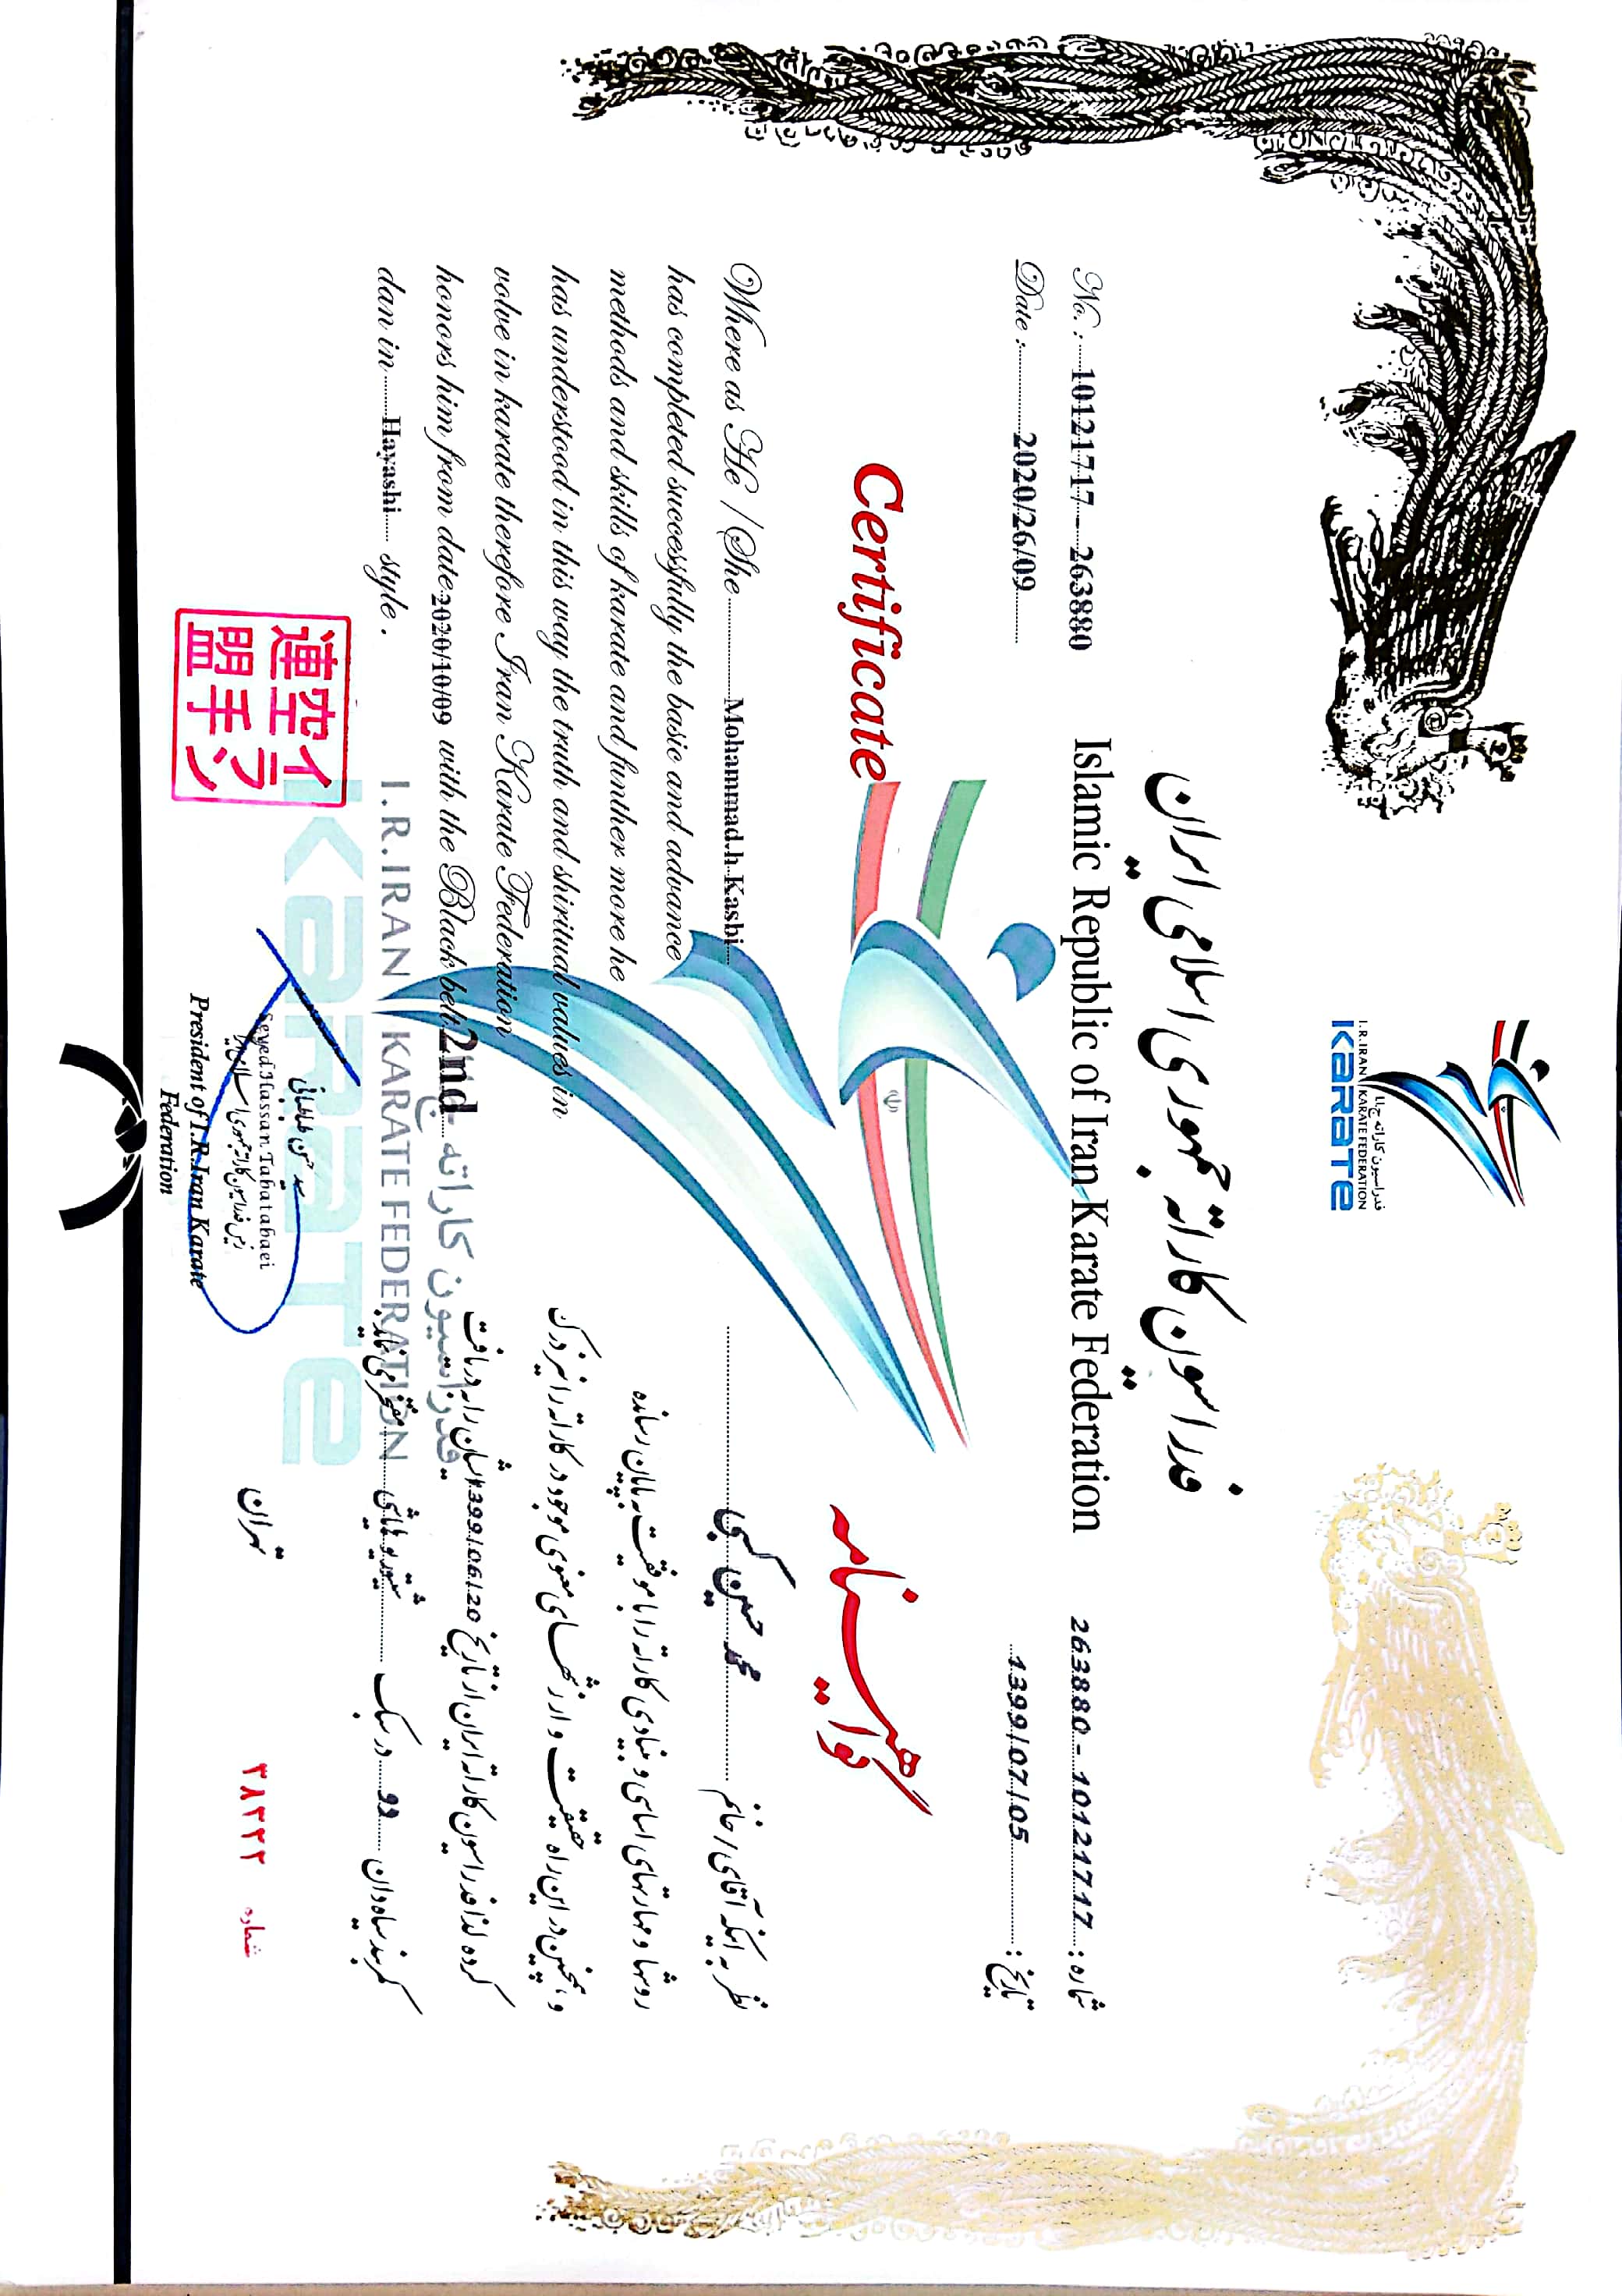 I.R.IRAN KARATE FEDERATION
فدراسیون کاراته ج.ا.ا
Karate
فدراسیون کاراته جمهوری اسلامی ایران
Islamic Republic of Iran Karate Federation
No. : 10121717 - 263880
Date : 2020/26/09
شماره : 263880 - 10121717
تاریخ : 1399/07/05
Certificate
گواهینامه
Where as He / She Mohammad.h Kasbi
has completed successfully the basic and advance
methods and skills of karate and funther more he
has understood in this way the truth and shiritual values in
volve in karate therefore Iran Karate Federation
honors him from date 2020/10/09 with the Black belt 2nd
dan in Hayashi style .
نظر به اینکه آقای / خانم محمد حسین کسبی
روشها و مهارتهای اساسی و بنیادی کاراته را با موفقیت به پایان رسانده
و همچنین در این راه حقیقت و ارزشهای معنوی موجود در کاراته را نیز درک
کرده لذا فدراسیون کاراته ایران از تاریخ 1399/06/20 ایشان را به دریافت
کمربند سیاه دان دو در سبک شیتوریو هایاشی مفتخر می نماید.
فدراسیون کاراته ج.ا.ا
I.R.IRAN KARATE FEDERATION
Karate
イラン
空手
連盟
سید حسن طباطبائی
Seyed Hassan Tabatabaei
رئیس فدراسیون کاراته جمهوری اسلامی ایران
President of I.R.Iran Karate
Federation
تهران
شماره ۳۸۲۲۲